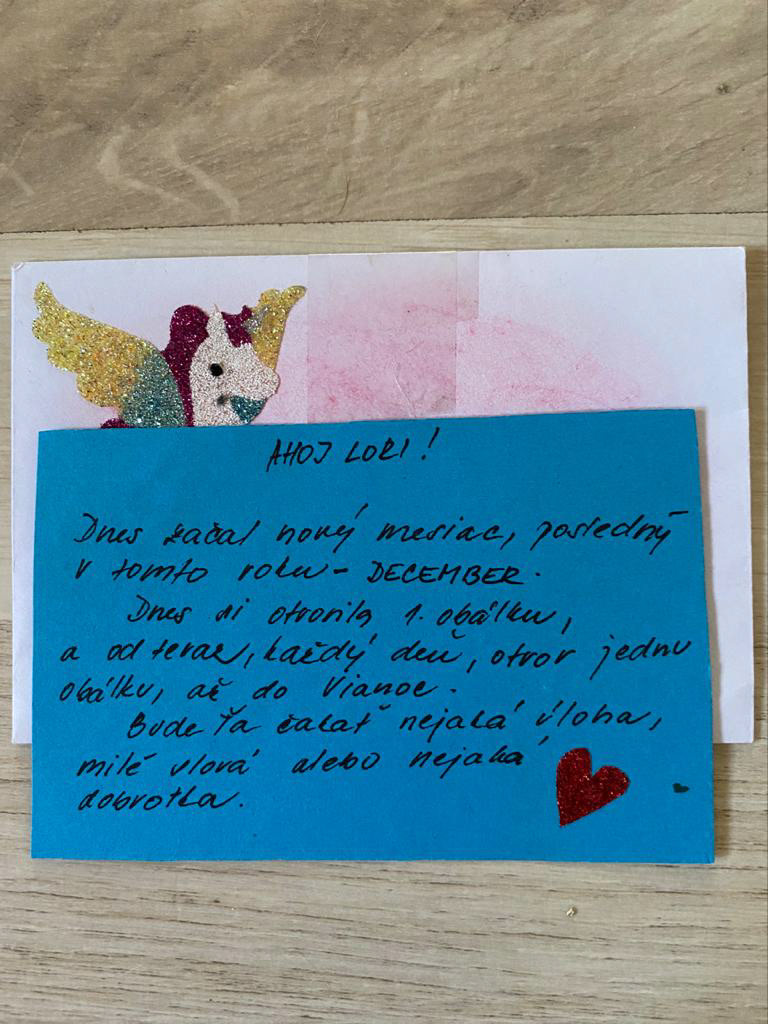 AHOJ LORI!
Dnes začal nový mesiac, posledný
v tomto roku - DECEMBER.
Dnes si otvorila 1. obálku,
a od teraz, každý deň, otvor jednu
obálku, až do Vianoc.
Bude Ťa čakať nejaká úloha,
milé slová alebo nejaká
dobrotka.